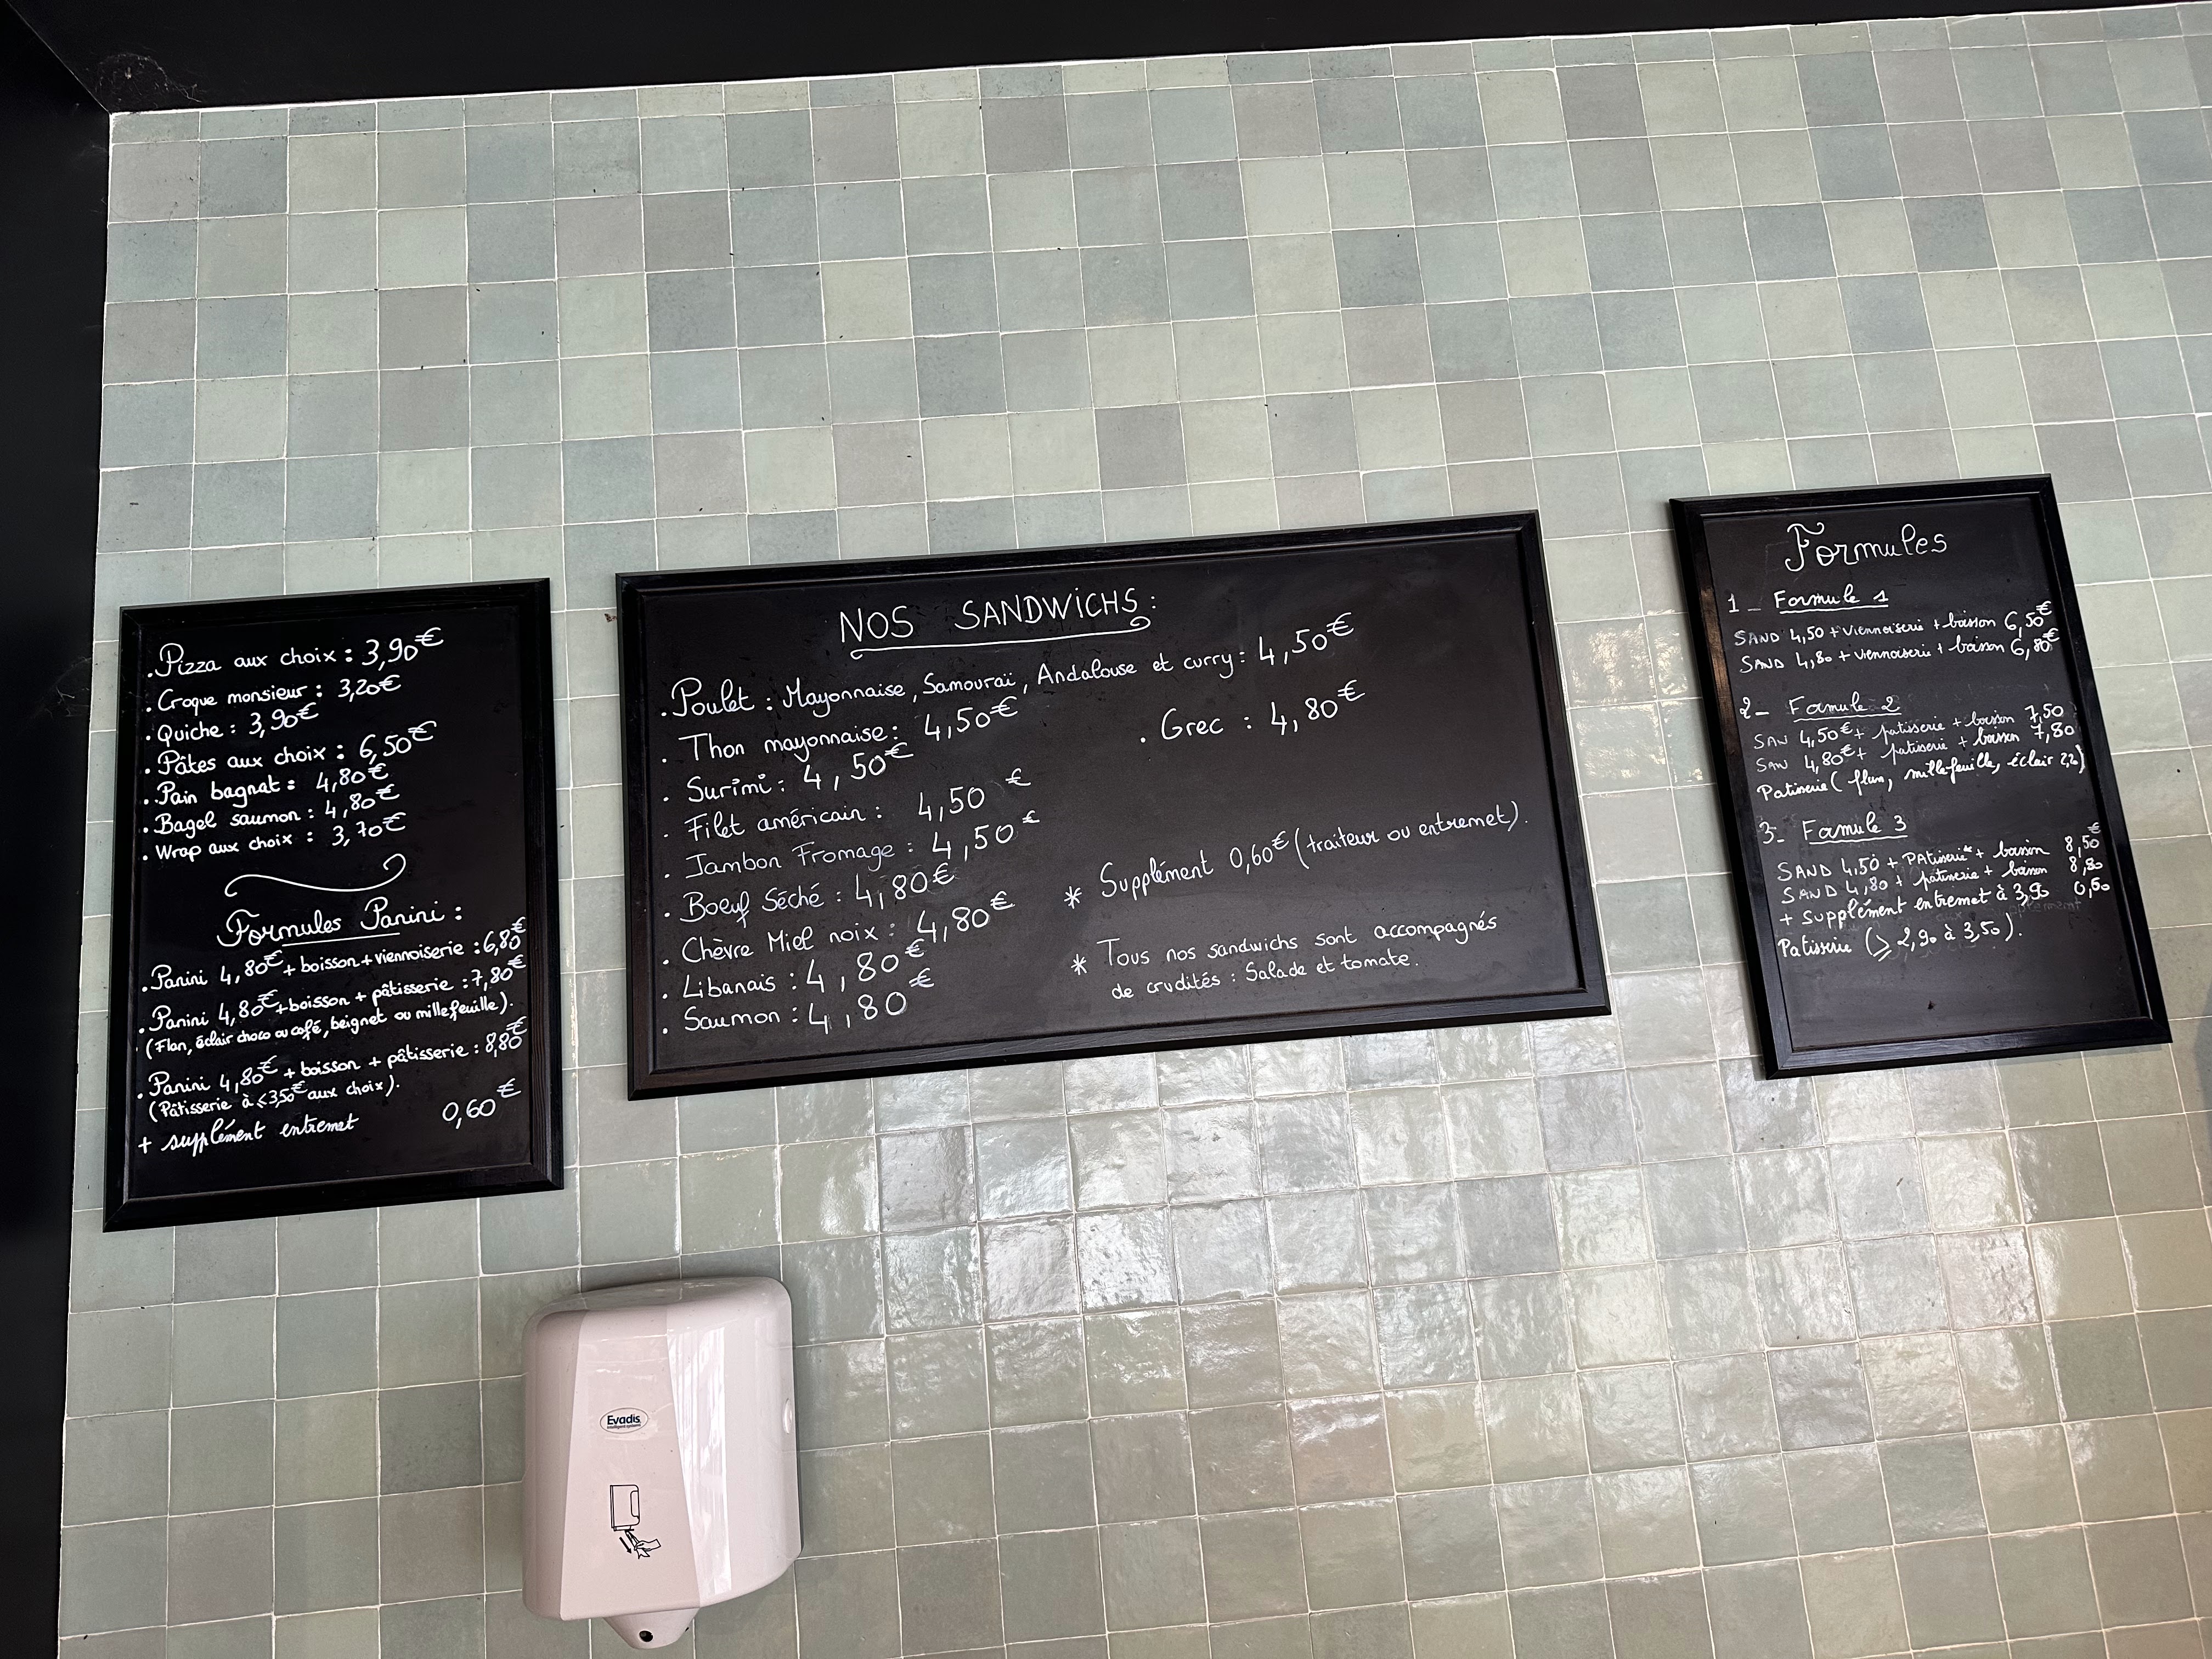 . Pizza aux choix : 3,90€
. Croque monsieur : 3,20€
. Quiche : 3,90€
. Pâtes aux choix : 6,50€
. Pain bagnat : 4,80€
. Bagel saumon : 4,80€
. Wrap aux choix : 3,70€
Formules Panini :
. Panini 4,80€ + boisson + viennoiserie : 6,80€
. Panini 4,80€ + boisson + pâtisserie : 7,80€
(Flan, éclair choco ou café, beignet ou millefeuille).
. Panini 4,80€ + boisson + pâtisserie : 8,80€
(Pâtisserie à ≤ 3,50€ aux choix).
+ supplément entremet 0,60€
NOS SANDWICHS :
. Poulet : Mayonnaise, Samouraï, Andalouse et curry : 4,50€
. Thon mayonnaise : 4,50€
. Surimi : 4,50€
. Filet américain : 4,50€
. Jambon Fromage : 4,50€
. Boeuf Séché : 4,80€
. Chèvre Miel noix : 4,80€
. Libanais : 4,80€
. Saumon : 4,80€
. Grec : 4,80€
* Supplément 0,60€ (traiteur ou entremet).
* Tous nos sandwichs sont accompagnés
de crudités : Salade et tomate.
Formules
1_ Formule 1
SAND 4,50 + viennoiserie + boisson 6,50€
SAND 4,80 + viennoiserie + boisson 6,80€
2_ Formule 2
SAN 4,50€ + patisserie + boisson 7,50
SAN 4,80€ + patisserie + boisson 7,80
Patisserie ( flan, millefeuille, éclair 2,20)
3_ Formule 3
SAND 4,50 + PAtisserie* + boisson 8,50€
SAND 4,80 + patisserie + boisson 8,80
+ supplément entremet à 3,90 0,60
Patisserie (≥ 2,90 à 3,50).
Evadis